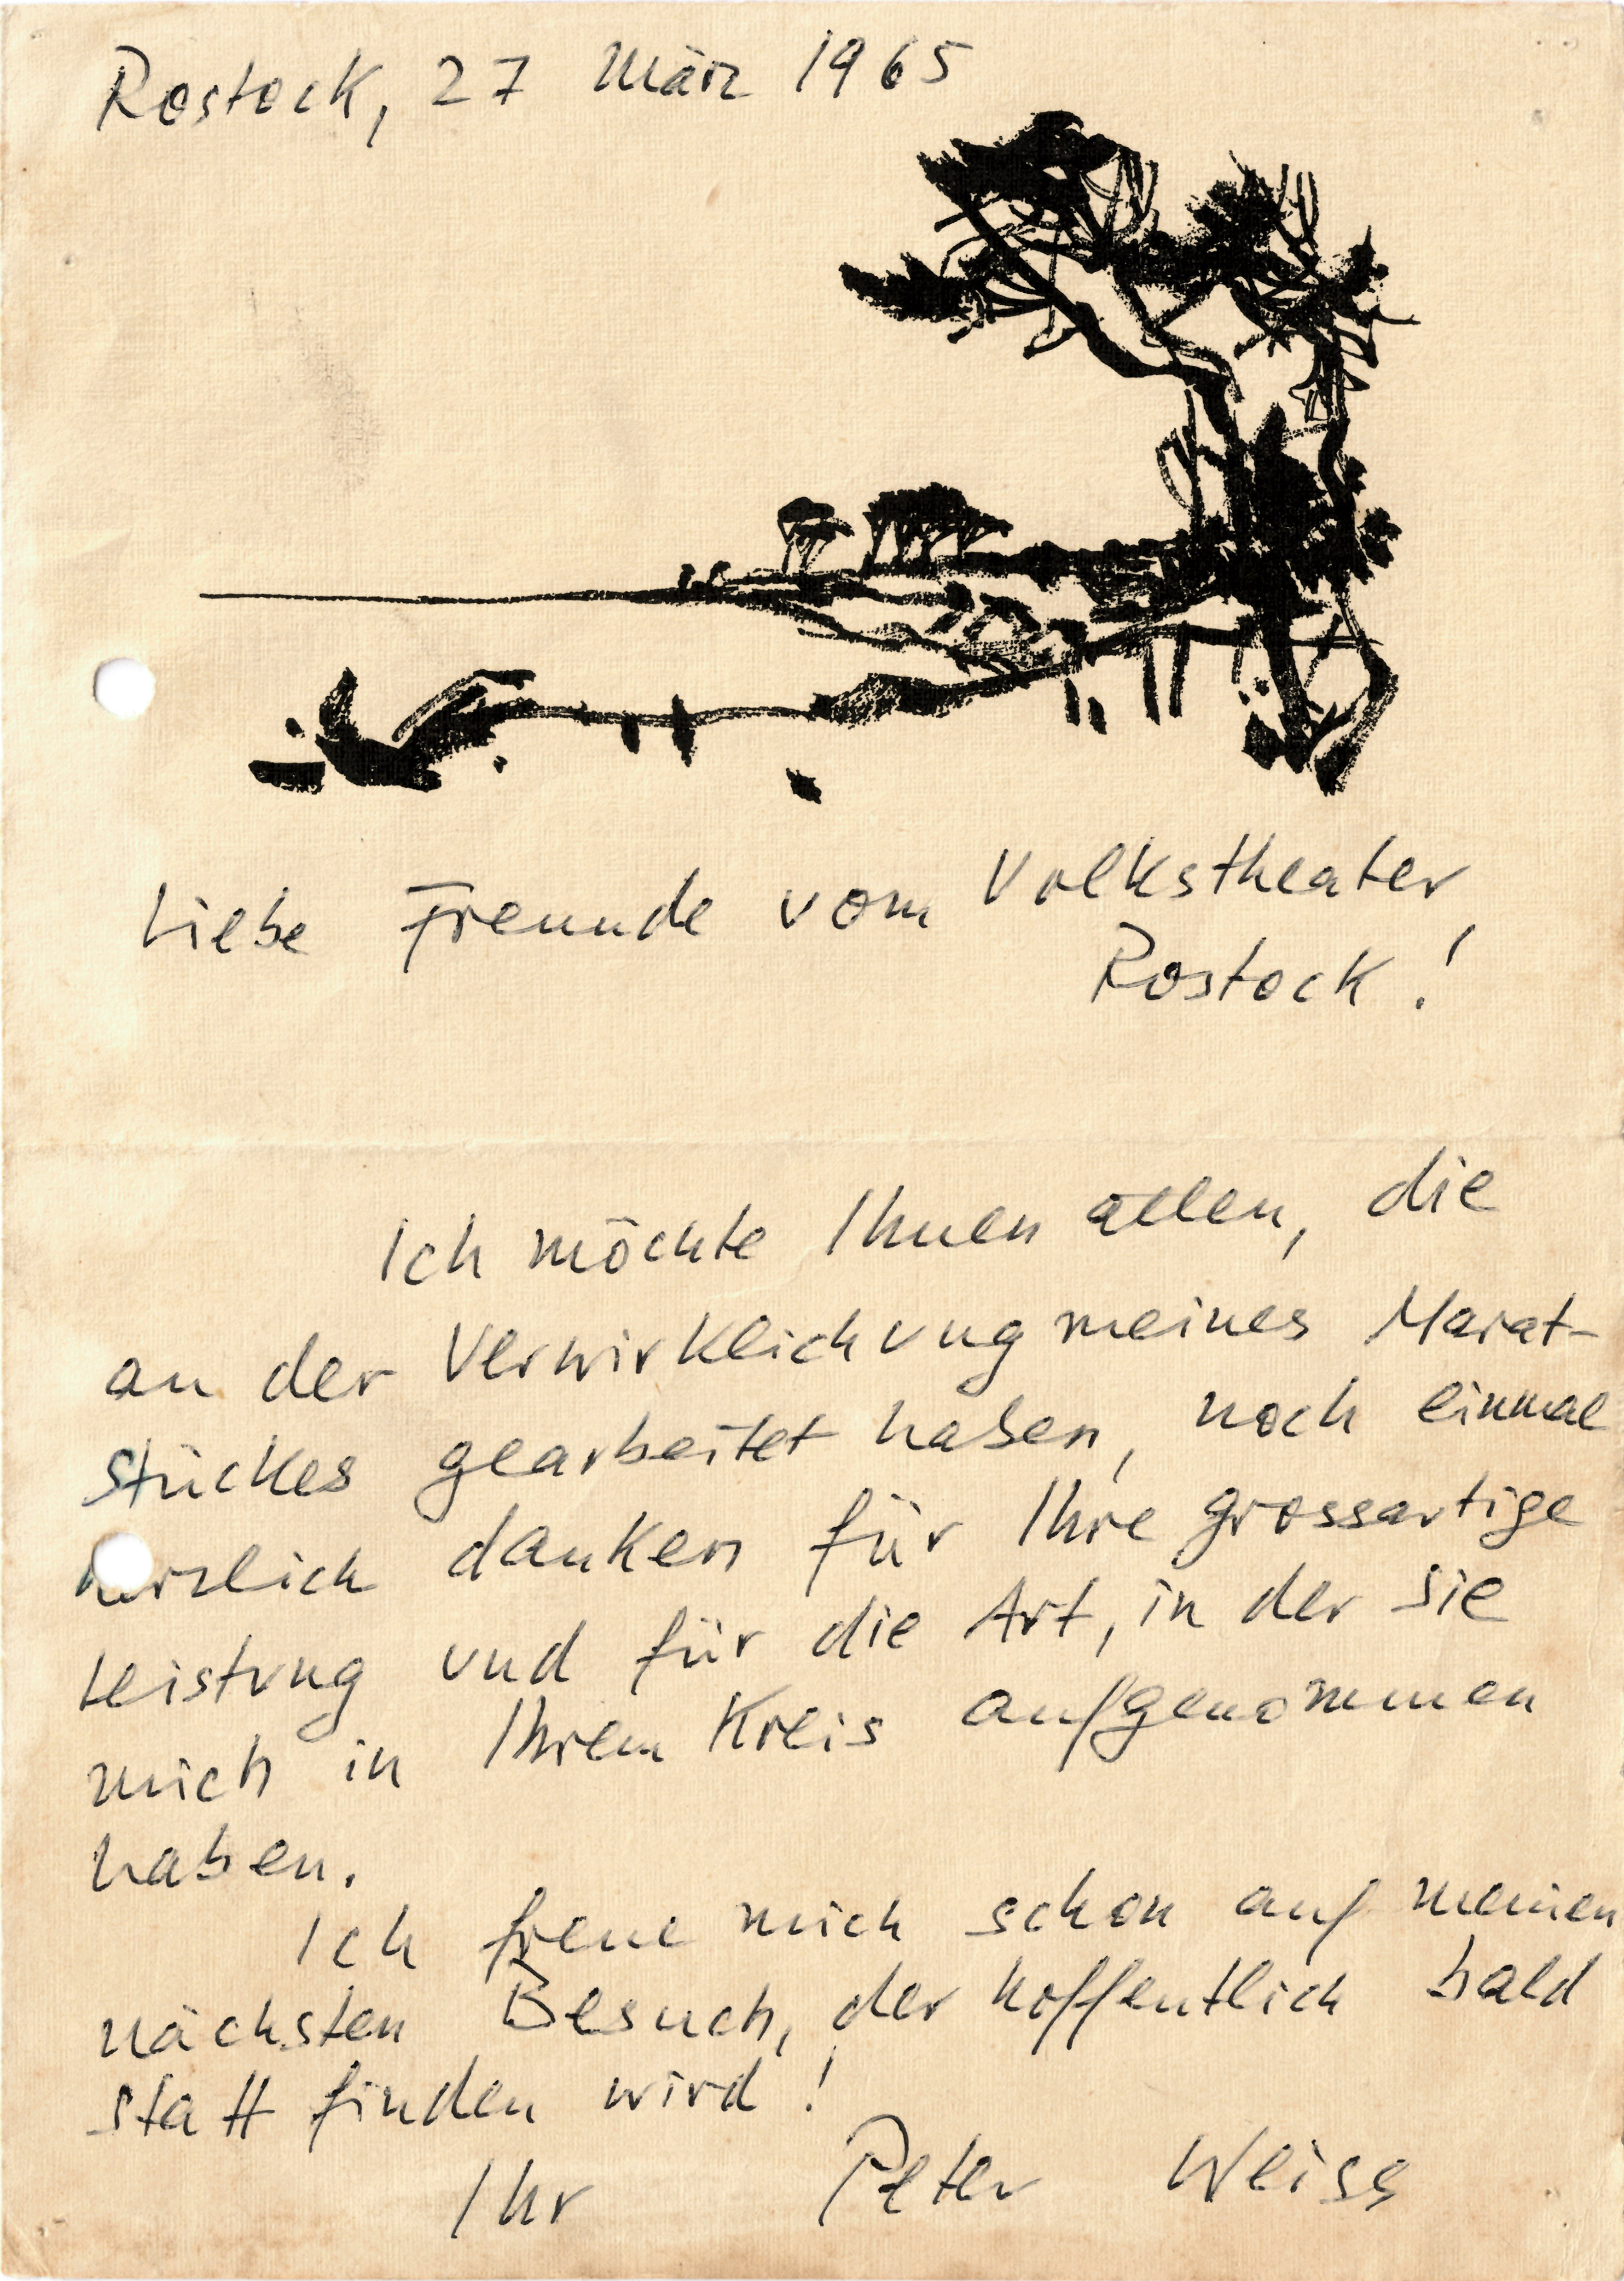 Rostock, 27 März 1965
Liebe Freunde vom Volkstheater
Rostock!
Ich möchte Ihnen allen, die
an der Verwirklichung meines Marat-
stückes gearbeitet haben, noch einmal
herzlich danken für Ihre grossartige
Leistung und für die Art, in der sie
mich in Ihrem Kreis aufgenommen
haben.
Ich freue mich schon auf meinen
nächsten Besuch, der hoffentlich bald
statt finden wird!
Ihr Peter Weiss